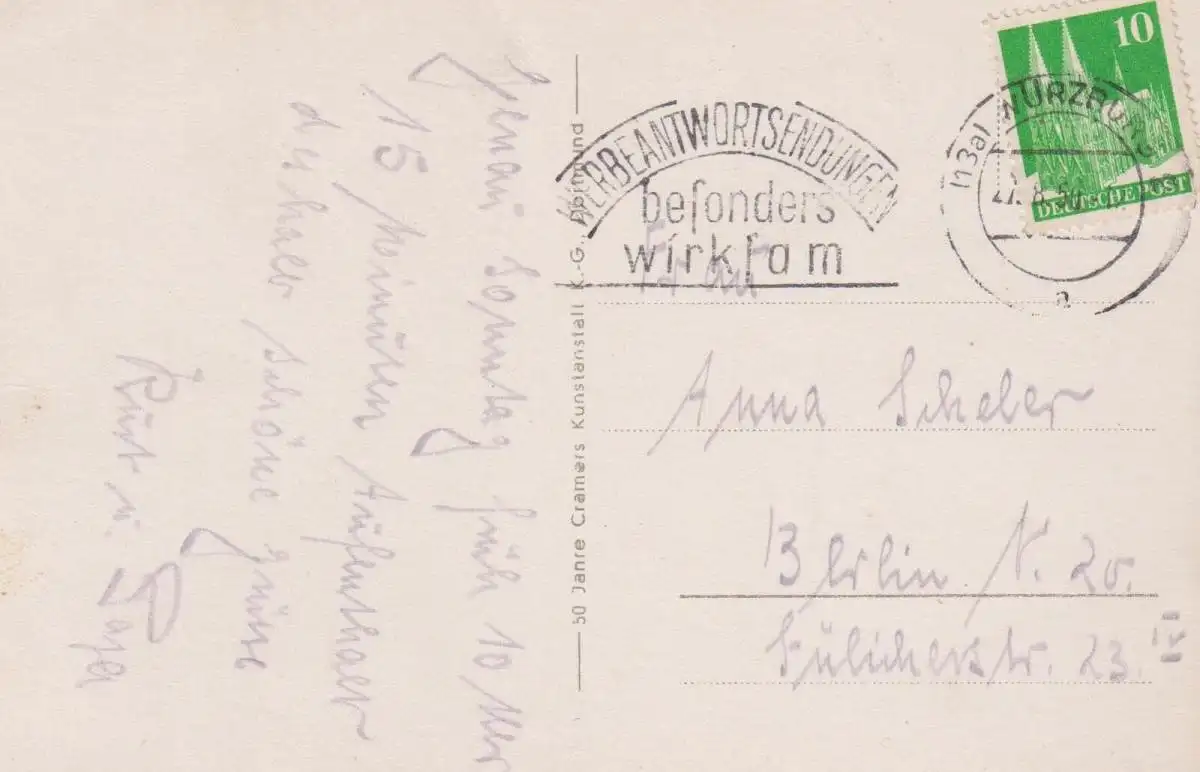 Genau Sonntag früh 10 Uhr
15 Minuten Aufenthalt
deshalb schöne Grüße
Kurt u. Papa
50 Jahre Cramers Kunstanstalt K.-G., Dortmund
WERBEANTWORTSENDUNGEN
besonders
wirksam
(13a) WÜRZBURG
27. 8. 50
10
DEUTSCHE POST
Frau
Anna Scheler
Berlin N. 20.
Jülicherstr. 23.